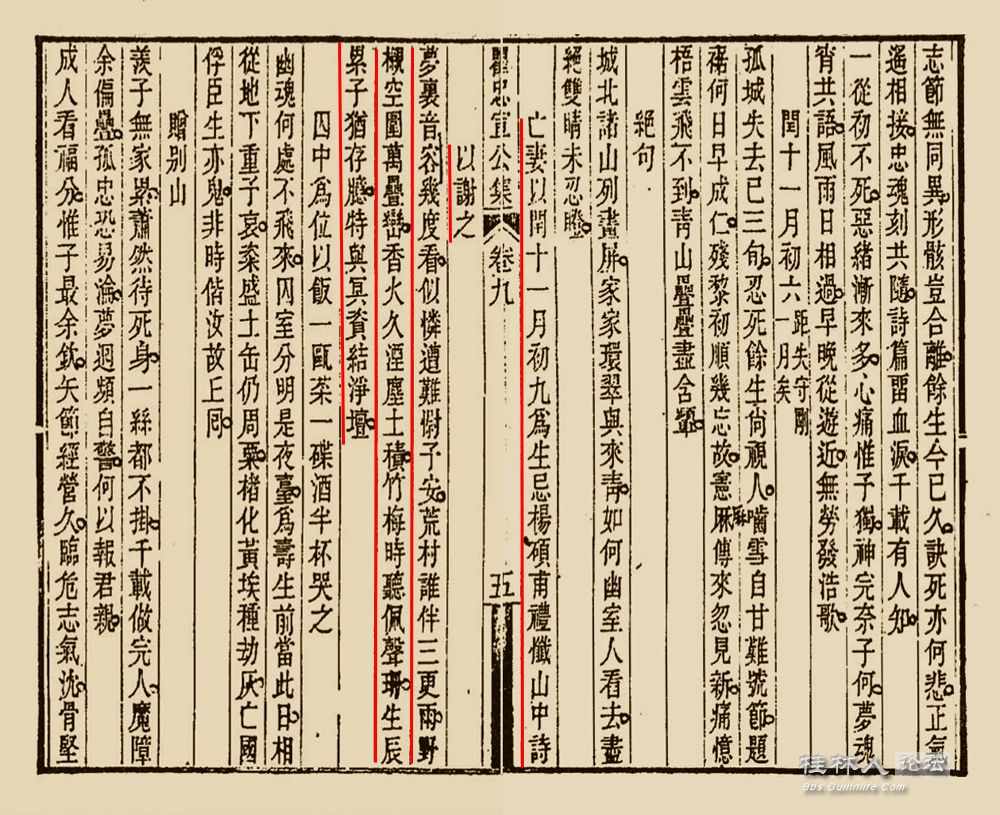 志節無同異形骸豈合離餘生今已久訣死亦何悲正氣
遙相接忠魂刻共隨詩篇畱血淚千載有人知
一從初不死惡緒漸來多心痛惟子獨神完奈子何夢魂
宵共語風雨日相過早晚從遊近無勞發浩歌
閏十一月初六距失守剛一月矣
孤城失去已三旬忍死餘生尙視人嚙雪自甘難號節題
襦何日早成仁殘黎初順幾忘故憲厤傳來忽見新痛憶
梧雲飛不到靑山疊疊盡含顰
絕句
城北諸山列畫屏家家環翠與來靑如何幽室人看去盡
絕雙睛未忍瞪
亡妻以閏十一月初九爲生忌楊碩甫禮懺山中詩
瞿忠宣公集 卷九 五
以謝之
夢裏音容幾度看似憐遭難尉子安荒村誰伴三更雨野
櫬空圍萬疊巒香火久湮塵土積竹梅時聽佩聲珊生辰
累子猶存膽特與冥資結淨壇
囚中爲位以飯一甌茶一碟酒半杯哭之
幽魂何處不飛來囚室分明是夜臺爲壽生前當此日相
從地下重子哀粢盛土缶仍周粟楮化黃埃種劫灰亡國
俘臣生亦鬼非時偕汝故王同
贈别山
羨子無家累蕭然待死身一絲都不掛千載做完人魔障
余偏疊孤忠恐易淪夢迴頻自警何以報君親
成人看福分惟子最余欽矢節經營久臨危志氣沈骨堅
桂林人论坛
Bbs.Guilinlife.Com